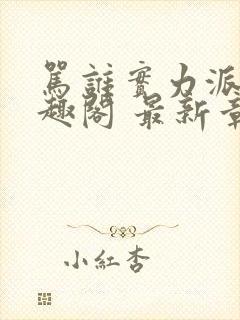 罵誰實力派
趣閣 最新章
小紅杏